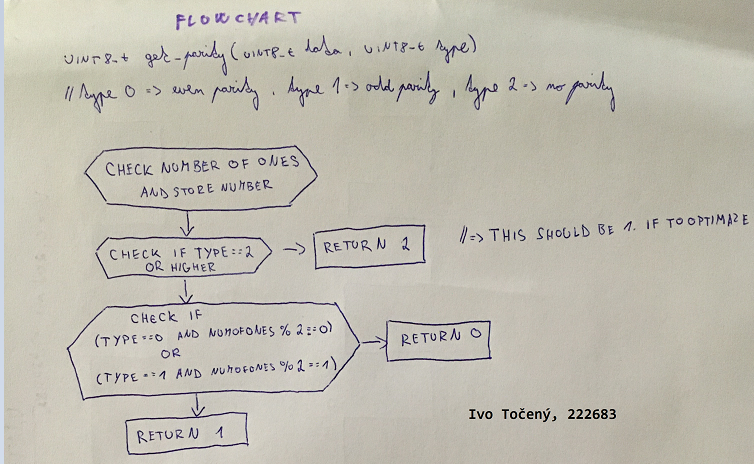 FLOWCHART
UINT8_t get_parity (UINT8_t data, UINT8_t type)
// type 0 => even parity, type 1 => odd parity, type 2 => no parity
CHECK NUMBER OF ONES
AND STORE NUMBER
CHECK IF TYPE==2
OR HIGHER
RETURN 2
//=> THIS SHOULD BE 1. IF TO OPTIMAZE
CHECK IF
(TYPE==0 AND NUMOFONES % 2==0)
OR
(TYPE==1 AND NUMOFONES %2==1)
RETURN 0
RETURN 1
Ivo Točený, 222683